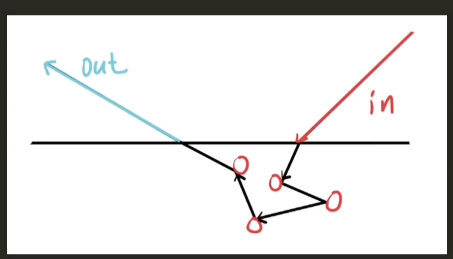 out
in